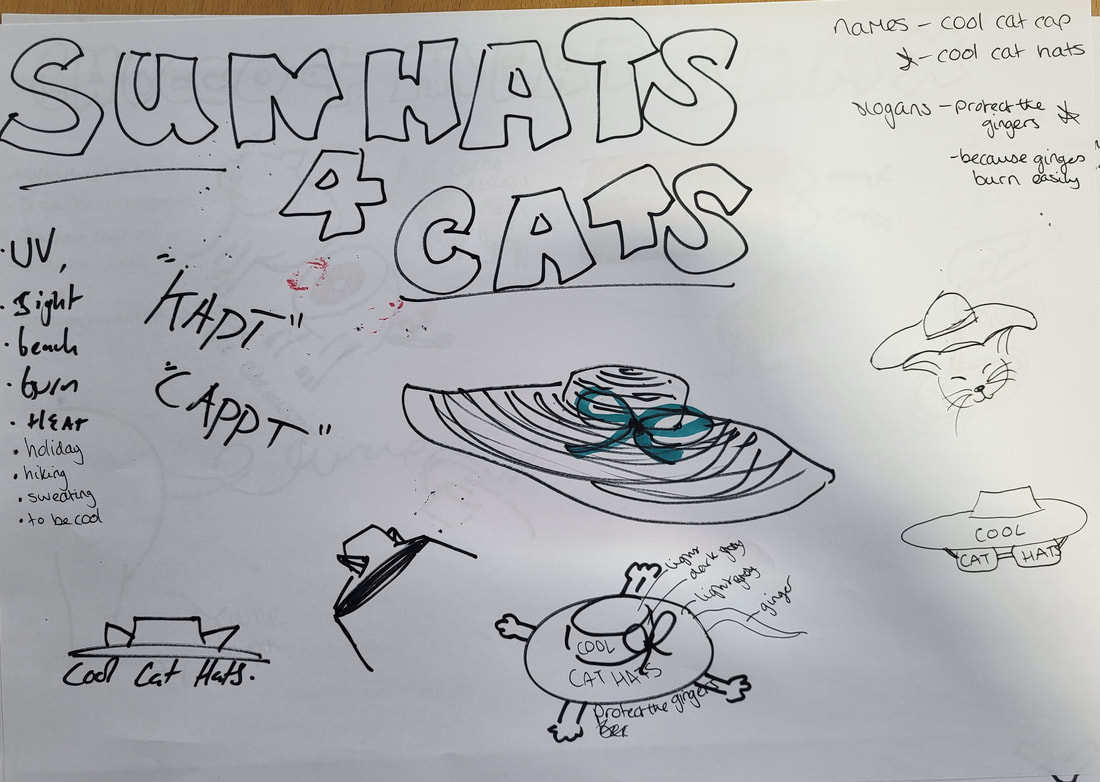 SUNHATS
4
CATS
names - cool cat cap
- cool cat hats
slogans - protect the
gingers
- because ginges
burn easily
UV,
sight
beach
burn
HEAT
holiday
hiking
sweating
to be cool
"KAPT"
"CAPPT"
COOL
CAT HATS
Cool Cat Hats.
light
dark grey
light grey
ginger
COOL
CAT HATS
protect the gingers